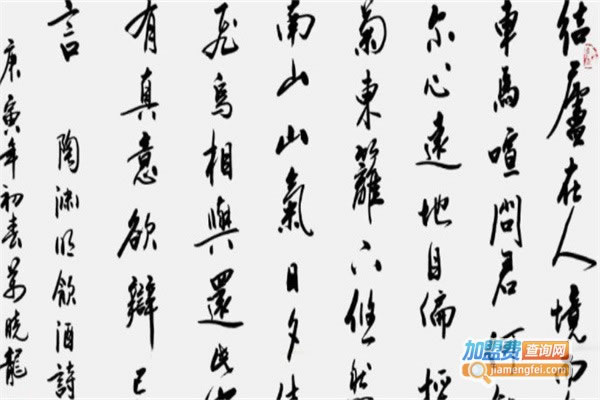 結廬在人境而
車馬喧問君何
尔心遠地自偏採
菊東籬下悠然
南山山氣日夕佳
飛鳥相與還此
有真意欲辯已
言 陶渊明飲酒詩
庚寅年初春萬曉龍
加盟费查询网
jiamengfei.com